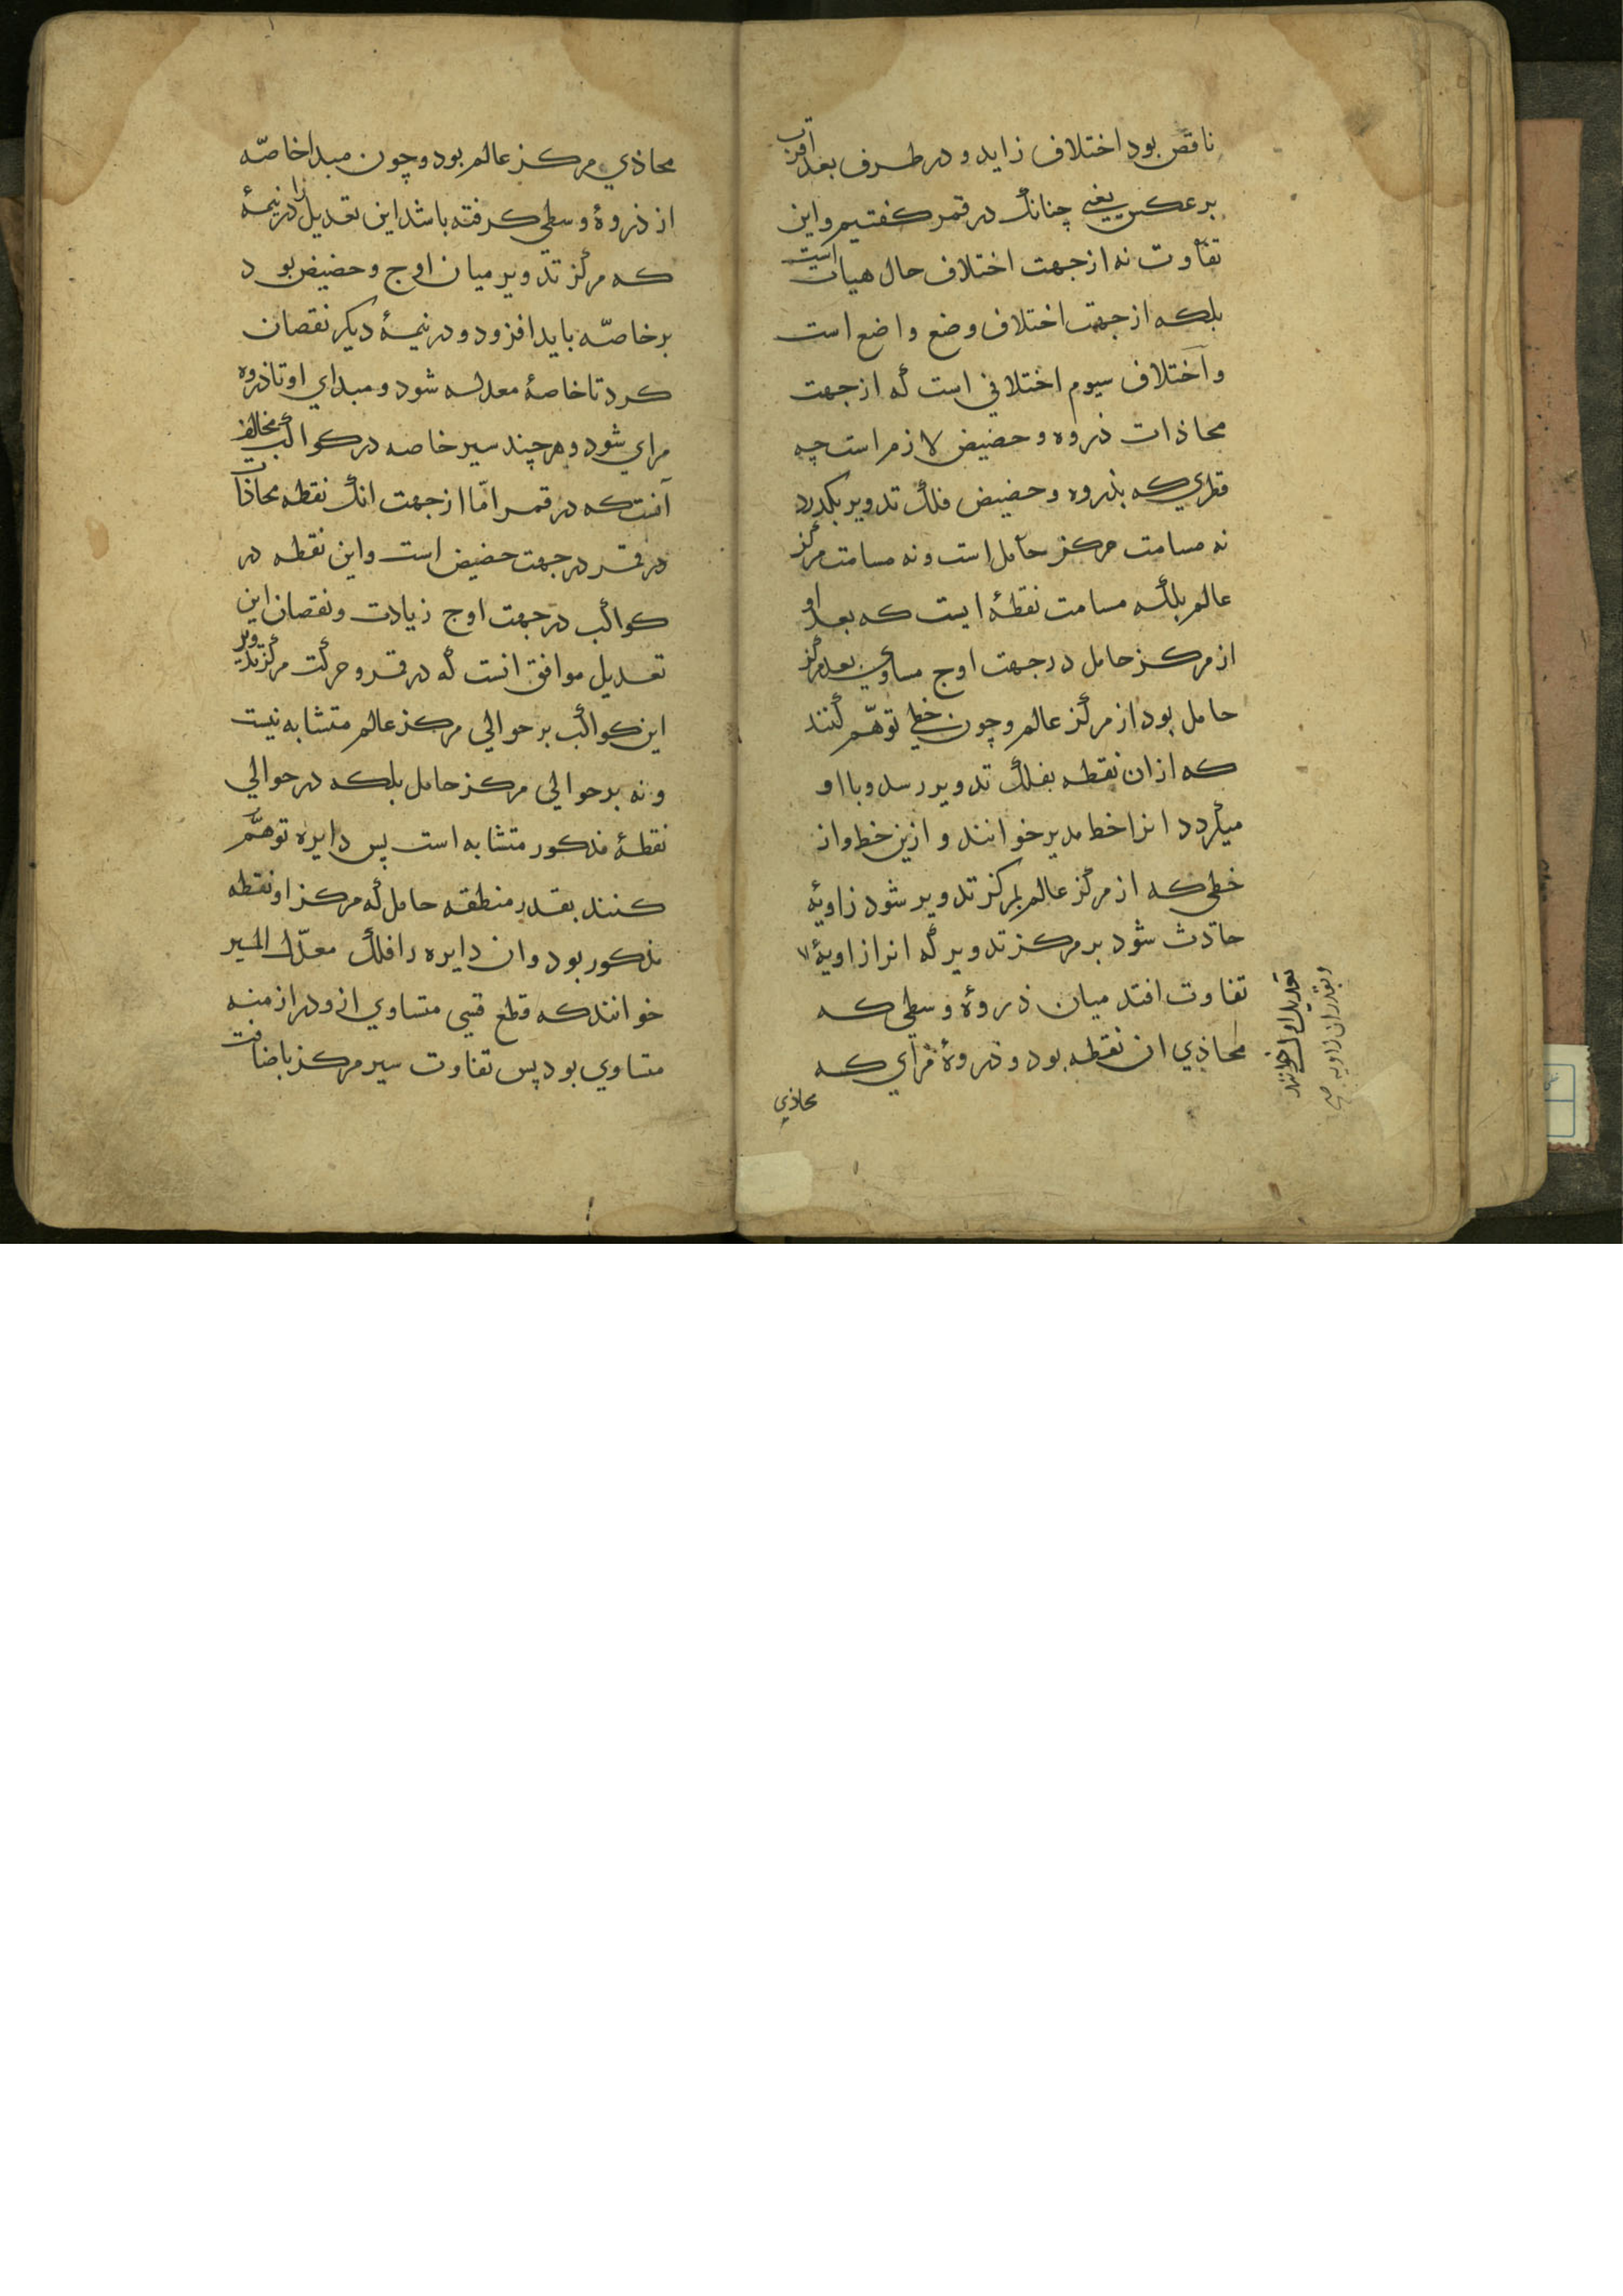 ناقص بود اختلاف زاید و در طرف بعد اقرب
بر عکس یعنی چنانک در قمر کفتیم و این
تفاوت نه از جهت اختلاف حال هیات است
بلکه از جهت اختلاف وضع واضع است
و اختلاف سیوم اختلافی است که از جهت
محاذات ذروه و حضیض لازم است چه
قطری که بذروه و حضیض فلک تدویر بکذرد
نه مسامت مرکز حامل است و نه مسامت مرکز
عالم بلکه مسامت نقطهٔ ایست که بعد او
از مرکز حامل در جهت اوج مساوی بعد مرکز
حامل بود از مرکز عالم و چون خطی توهّم کنند
که از ان نقطه بفلک تدویر رسد و با او
میکردد انرا خط مدیر خوانند و ازین خط و از
خطی که از مرکز عالم بمرکز تدویر شود زاویهٔ
حادث شود بر مرکز تدویر که انرا زاویهٔ
تفاوت افتد میان ذروهٔ وسطی که
محاذی ان نقطه بود و ذروهٔ مرای که
محاذی
تعدیل اول خوانند
و بقدر ان زاویه صح
محاذی مرکز عالم بود و چون مبدا خاصّه
از ذروهٔ وسطی کرفته باشد این تعدیل را در نیمهٔ
که مرکز تدویر میان اوج و حضیض بود
بر خاصّه باید افزود و در نیمهٔ دیکر نقصان
کرد تا خاصهٔ معدله شود و مبدای او تا ذروه
مرای شود و هر چند سیر خاصه در کواکب مخالف
آنست که در قمر امّا از جهت انک نقطه محاذات
در قمر در جهت حضیض است و این نقطه در
کواکب در جهت اوج زیادت و نقصان این
تعدیل موافق انست که در قمر و حرکت مرکز تدویر
این کواکب بر حوالی مرکز عالم متشابه نیست
و نه بر حوالی مرکز حامل بلکه در حوالی
نقطهٔ مذکور متشابه است پس دایره توهّم
کنند بقدر منطقه حامل که مرکز او نقطه
مذکور بود و ان دایره را فلک معدّل المسیر
خوانند که قطع قسی متساوی ازو در ازمنه
متساوی بود پس تفاوت سیر مرکز باضافت